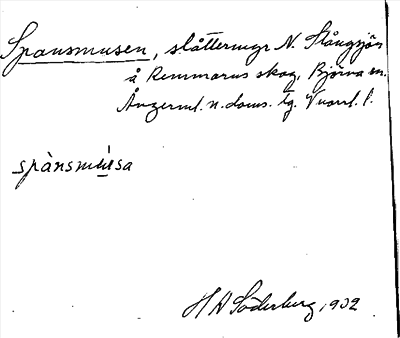 Spansmusen, slåttermyr N. Stångsjön
å Remmarns skog, Björna sn.
Ångerml. n. doms. tg. Vnorrl. l.
spànsmúsa
H A Söderberg, 1932